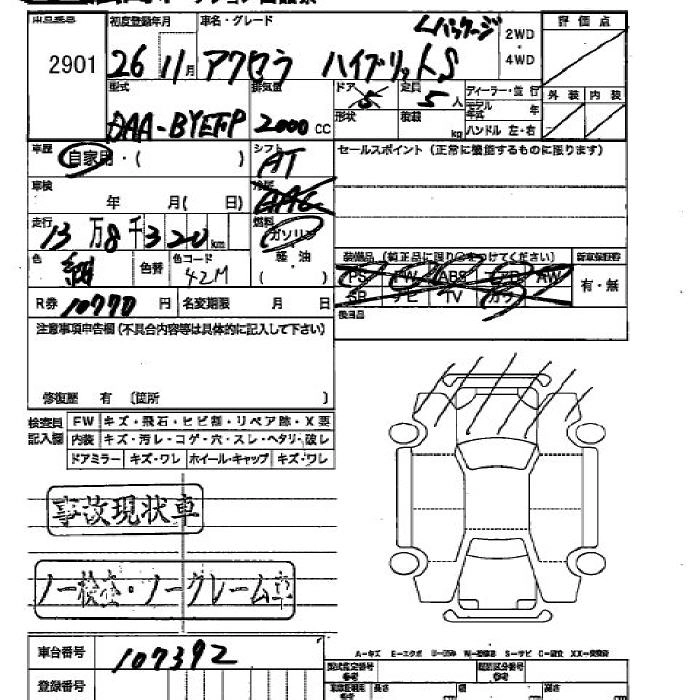 出品番号 初度登録年月 車名・グレード Lパッケージ 2WD・4WD 評価点
2901 26 11月 アクセラ ハイブリッドS
型式 排気量 ドア 定員 ディーラー・並行 外装 内装
DAA-BYEFP 2000cc 5 5人 モデル年式 年
形状 積載 kg ハンドル 左・右
車歴 自家用・( ) シフト AT セールスポイント(正常に機能するものに限ります)
車検 年 月( 日) 冷房 AAC
走行 13万8千320km 燃料 ガソリン
軽・油
( )
色 紺 色替 色コード 42M
装備品(純正品に限り○をつけてください) 新車保証書
PS PW ABS エアB AW 有・無
SR ナビ TV カワ
R券 10770円 名変期限 月 日 後日品
注意事項申告欄(不具合内容等は具体的に記入して下さい)
修復歴 有 〔箇所 〕
検査員記入欄 FW キズ・飛石・ヒビ割・リペア跡・X要
内装 キズ・汚レ・コゲ・穴・スレ・ヘタリ・破レ
ドアミラー キズ・ワレ ホイール・キャップ キズ・ワレ
事故現状車
ノー検査・ノークレーム車
車台番号 107392
A-キズ E-エクボ U-凹み W-補修跡 S-サビ C-腐食 XX-交換済
登録番号 型式指定番号 類別区分番号
長さ 幅 高さ